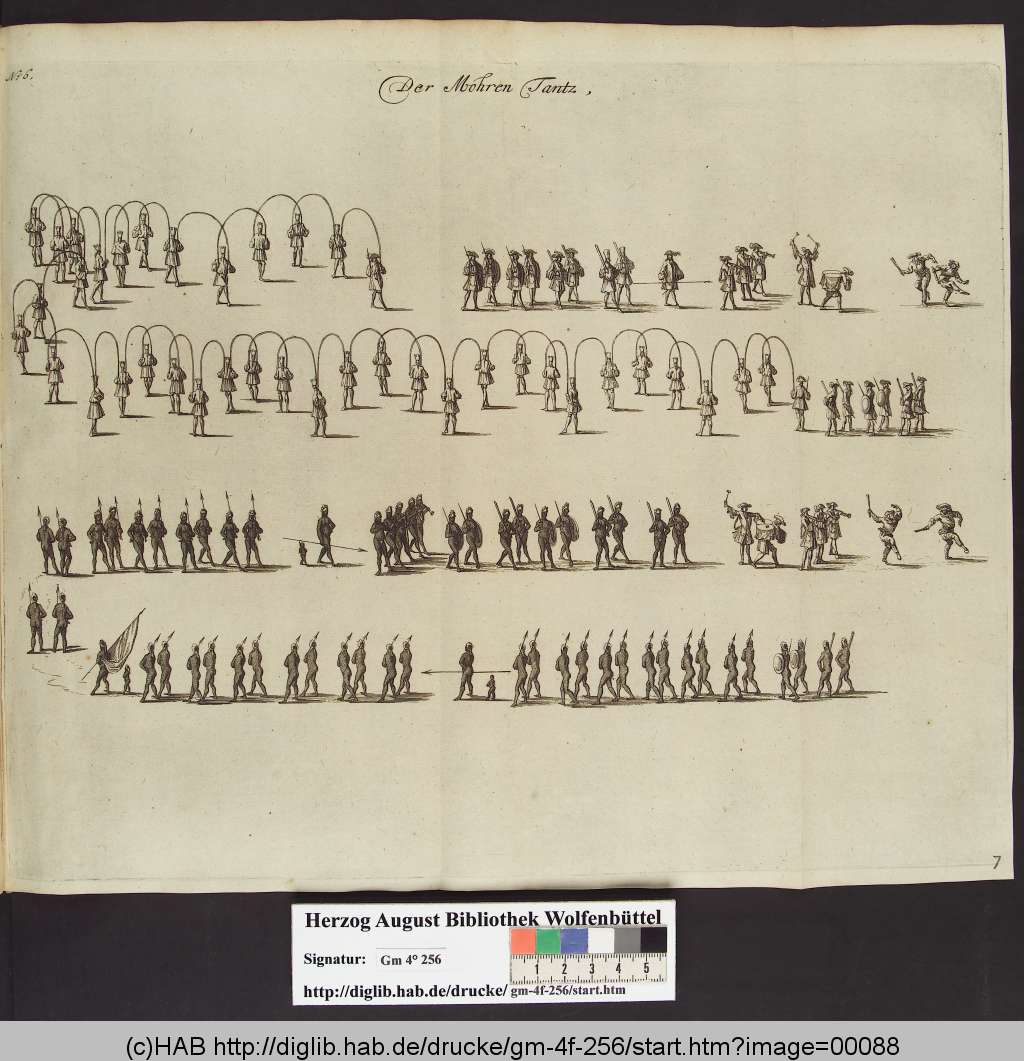 No 6.
Der Mohren Tantz,
7
Herzog August Bibliothek Wolfenbüttel
Signatur: Gm 4° 256
1 2 3 4 5
http://diglib.hab.de/drucke/ gm-4f-256/start.htm
(c)HAB http://diglib.hab.de/drucke/gm-4f-256/start.htm?image=00088